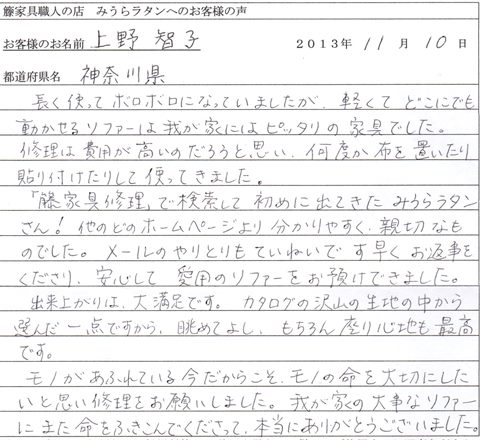 籐家具職人の店　みうらラタンへのお客様の声
お客様のお名前 上野 智子　2013年 11 月 10 日
都道府県名　神奈川県
長く使ってボロボロになっていましたが、軽くてどこにでも
動かせるソファーは我が家にはピッタリの家具でした。
修理は費用が高いのだろうと思い、何度か布を置いたり
貼り付けたりして使ってきました。
「籐家具修理」で検索して初めに出てきたみうらラタン
さん！他のどのホームページより分かりやすく、親切なも
のでした。メールのやりとりもていねいで す早くお返事を
くださり、安心して愛用のソファーをお預けできました。
出来上がりは、大満足です。カタログの沢山の生地の中から
選んだ一点ですから、眺めてよし、もちろん座り心地も最高
です。
モノがあふれている今だからこそ、モノの命を大切にした
いと思い修理をお願いしました。我が家の大事なソファー
にまた命をふきこんでくださって、本当にありがとうございました。